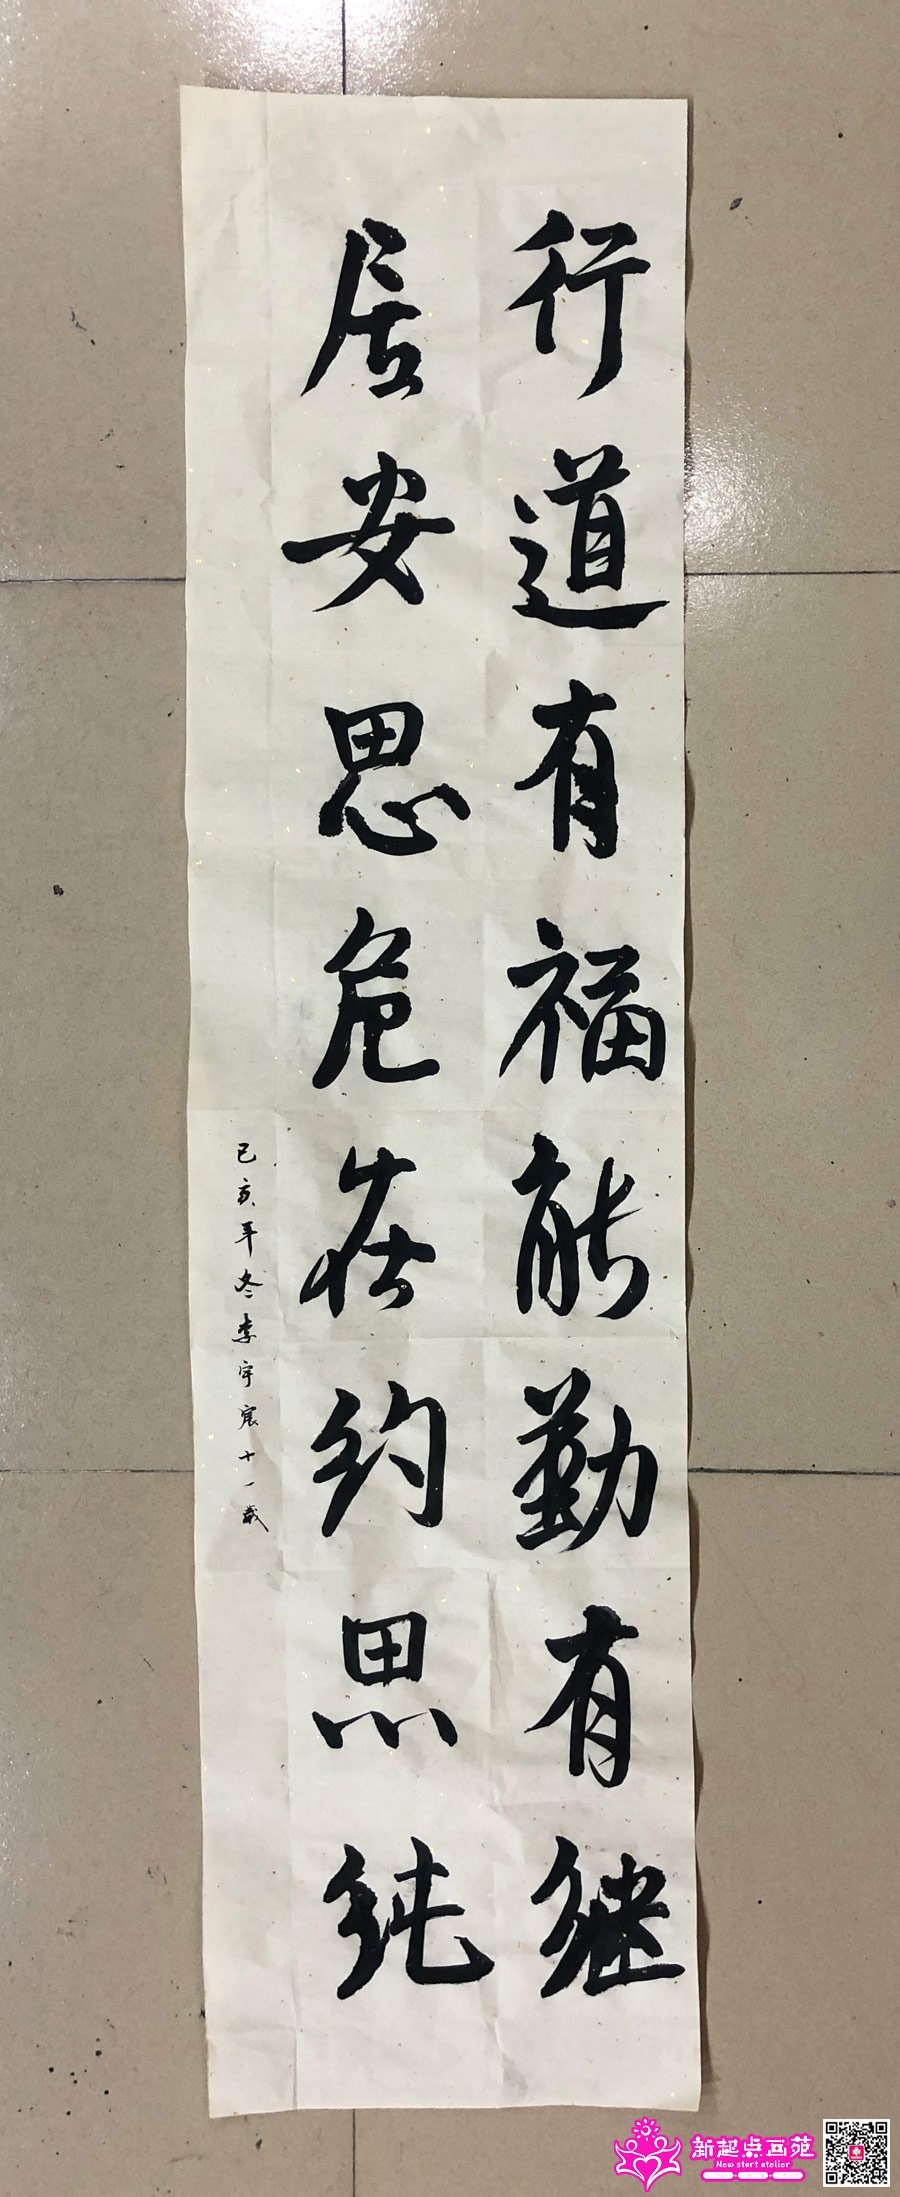 行道有福能勤有继
居安思危在约思纯
己亥年冬李宇宸十一岁
新起点画苑
New start atelier